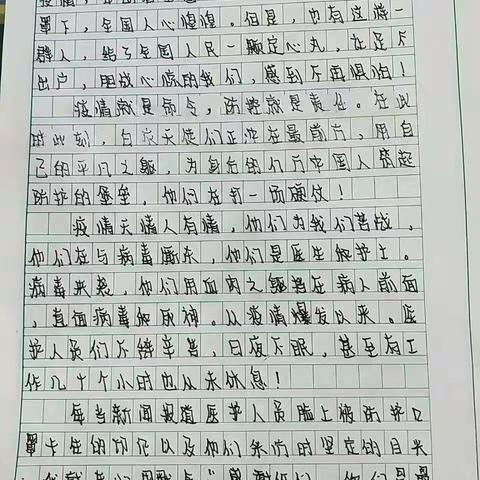 罩下，全国人心惶惶。但是，也有这样一
群人，给了全国人民一颗定心丸，让足不
出户，胆战心惊的我们，感到不再惧怕！
疫情就是命令，防控就是责任。在此
时此刻，白衣天使们正冲在最前方，用自
己的平凡之躯，为身后的亿万中国人筑起
防护的堡垒，他们在打一场硬仗！
疫情无情人有情，他们为我们苦战，
他们在与病毒厮杀，他们是医生和护士。
病毒来袭，他们用血肉之躯挡在病人前面
，直面病毒和死神。从疫情爆发以来。医
护人员们不辞辛苦，日夜不眠，甚至有工
作几十个小时也从未休息！
每当新闻报道医护人员脸上被防护口
罩卡住的印记以及他们采访时坚定的目光